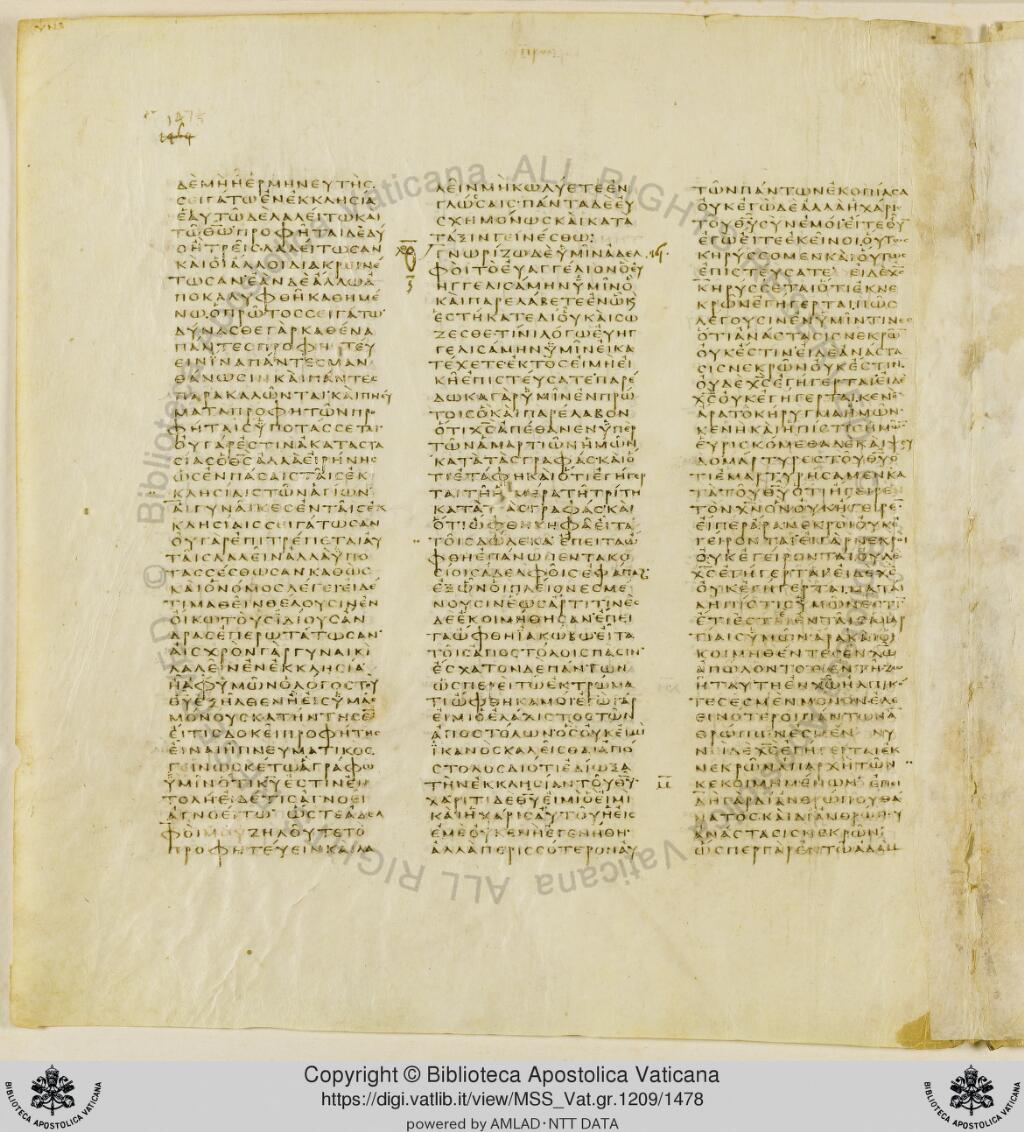 1478
ΔΕΜΗΗΕΡΜΗΝΕΥΤΗϹ
ϹΕΙΓΑΤΩΕΝΕΚΚΛΗϹΙΑ
ΕΑΥΤΩΔΕΛΑΛΕΙΤΩΚΑΙ
ΤΩΘΩΠΡΟΦΗΤΑΙΔΕΔΥ
ΟΗΤΡΕΙϹΛΑΛΕΙΤΩϹΑΝ
ΚΑΙΟΙΑΛΛΟΙΔΙΑΚΡΕΙΝΕ
ΤΩϹΑΝΕΑΝΔΕΑΛΛΩΑ
ΠΟΚΑΛΥΦΘΗΚΑΘΗΜΕ
ΝΩΟΠΡΩΤΟϹϹΕΙΓΑΤΩ
ΔΥΝΑϹΘΕΓΑΡΚΑΘΕΝΑ
ΠΑΝΤΕϹΠΡΟΦΗΤΕΥ
ΕΙΝΙΝΑΠΑΝΤΕϹΜΑΝ
ΘΑΝΩϹΙΝΚΑΙΠΑΝΤΕϹ
ΠΑΡΑΚΑΛΩΝΤΑΙΚΑΙΠΝΕΥ
ΜΑΤΑΠΡΟΦΗΤΩΝΠΡΟ
ΦΗΤΑΙϹΥΠΟΤΑϹϹΕΤΑΙ
ΟΥΓΑΡΕϹΤΙΝΑΚΑΤΑϹΤΑ
ϹΙΑϹΟΘϹΑΛΛΑΕΙΡΗΝΗϹ
ΩϹΕΝΠΑϹΑΙϹΤΑΙϹΕΚ
ΚΛΗϹΙΑΙϹΤΩΝΑΓΙΩΝ
ΑΙΓΥΝΑΙΚΕϹΕΝΤΑΙϹΕΚ
ΚΛΗϹΙΑΙϹϹΕΙΓΑΤΩϹΑΝ
ΟΥΓΑΡΕΠΙΤΡΕΠΕΤΑΙΑΥ
ΤΑΙϹΛΑΛΕΙΝΑΛΛΑΥΠΟ
ΤΑϹϹΕϹΘΩϹΑΝΚΑΘΩϹ
ΚΑΙΟΝΟΜΟϹΛΕΓΕΙΕΙΔΕ
ΤΙΜΑΘΕΙΝΘΕΛΟΥϹΙΝΕΝ
ΟΙΚΩΤΟΥϹΙΔΙΟΥϹΑΝ
ΔΡΑϹΕΠΕΡΩΤΑΤΩϹΑΝ
ΑΙϹΧΡΟΝΓΑΡΓΥΝΑΙΚΙ
ΛΑΛΕΙΝΕΝΕΚΚΛΗϹΙΑ
ΗΑΦΥΜΩΝΟΛΟΓΟϹΤΟΥ
ΘΥΕΞΗΛΘΕΝΗΕΙϹΥΜΑϹ
ΜΟΝΟΥϹΚΑΤΗΝΤΗϹΕ
ΕΙΤΙϹΔΟΚΕΙΠΡΟΦΗΤΗϹ
ΕΙΝΑΙΗΠΝΕΥΜΑΤΙΚΟϹ
ΓΕΙΝΩϹΚΕΤΩΑΓΡΑΦΩ
ΥΜΙΝΟΤΙΚΥΕϹΤΙΝΕΝ
ΤΟΛΗΕΙΔΕΤΙϹΑΓΝΟΕΙ
ΑΓΝΟΕΙΤΩΩϹΤΕΑΔΕΛ
ΦΟΙΜΟΥΖΗΛΟΥΤΕΤΟ
ΠΡΟΦΗΤΕΥΕΙΝΚΑΙΛΑ
ΛΕΙΝΜΗΚΩΛΥΕΤΕΕΝ
ΓΛΩϹϹΑΙϹΠΑΝΤΑΔΕΕΥ
ϹΧΗΜΟΝΩϹΚΑΙΚΑΤΑ
ΤΑΞΙΝΓΕΙΝΕϹΘΩ
ΓΝΩΡΙΖΩΔΕΥΜΙΝΑΔΕΛ
ΦΟΙΤΟΕΥΑΓΓΕΛΙΟΝΟΕΥ
ΗΓΓΕΛΙϹΑΜΗΝΥΜΙΝΟ
ΚΑΙΠΑΡΕΛΑΒΕΤΕΕΝΩΚ
ΕϹΤΗΚΑΤΕΔΙΟΥΚΑΙϹΩ
ΖΕϹΘΕΤΙΝΙΛΟΓΩΕΥΗΓ
ΓΕΛΙϹΑΜΗΝΥΜΙΝΕΙΚΑ
ΤΕΧΕΤΕΕΚΤΟϹΕΙΜΗΕΙ
ΚΗΕΠΙϹΤΕΥϹΑΤΕΠΑΡΕ
ΔΩΚΑΓΑΡΥΜΙΝΕΝΠΡΩ
ΤΟΙϹΟΚΑΙΠΑΡΕΛΑΒΟΝ
ΟΤΙΧϹΑΠΕΘΑΝΕΝΥΠΕΡ
ΤΩΝΑΜΑΡΤΙΩΝΗΜΩΝ
ΚΑΤΑΤΑϹΓΡΑΦΑϹΚΑΙΟ
ΤΙΕΤΑΦΗΚΑΙΟΤΙΕΓΗΓΕΡ
ΤΑΙΤΗΗΜΕΡΑΤΗΤΡΙΤΗ
ΚΑΤΑΤΑϹΓΡΑΦΑϹΚΑΙ
ΟΤΙΩΦΘΗΚΗΦΑΕΙΤΑ
ΤΟΙϹΔΩΔΕΚΑΕΠΕΙΤΑΩ
ΦΘΗΕΠΑΝΩΠΕΝΤΑΚΟ
ϹΙΟΙϹΑΔΕΛΦΟΙϹΕΦΑΠΑΞ
ΕΞΩΝΟΙΠΛΕΙΟΝΕϹΜΕ
ΝΟΥϹΙΝΕΩϹΑΡΤΙΤΙΝΕϹ
ΔΕΕΚΟΙΜΗΘΗϹΑΝΕΠΕΙ
ΤΑΩΦΘΗΙΑΚΩΒΩΕΙΤΑ
ΤΟΙϹΑΠΟϹΤΟΛΟΙϹΠΑϹΙΝ
ΕϹΧΑΤΟΝΔΕΠΑΝΤΩΝ
ΩϹΠΕΡΕΙΤΩΕΚΤΡΩΜΑ
ΤΙΩΦΘΗΚΑΜΟΙΕΓΩΓΑΡ
ΕΙΜΙΟΕΛΑΧΙϹΤΟϹΤΩΝ
ΑΠΟϹΤΟΛΩΝΟϹΟΥΚΕΙΜΙ
ΙΚΑΝΟϹΚΑΛΕΙϹΘΑΙΑΠΟ
ϹΤΟΛΟϹΔΙΟΤΙΕΔΙΩΞΑ
ΤΗΝΕΚΚΛΗϹΙΑΝΤΟΥΘΥ
ΧΑΡΙΤΙΔΕΘΥΕΙΜΙΟΕΙΜΙ
ΚΑΙΗΧΑΡΙϹΑΥΤΟΥΗΕΙϹ
ΕΜΕΟΥΚΕΝΗΕΓΕΝΗΘΗ
ΑΛΛΑΠΕΡΙϹϹΟΤΕΡΟΝΑΥ
ΤΩΝΠΑΝΤΩΝΕΚΟΠΙΑϹΑ
ΟΥΚΕΓΩΔΕΑΛΛΑΗΧΑΡΙϹ
ΤΟΥΘΥϹΥΝΕΜΟΙΕΙΤΕΟΥ
ΕΓΩΕΙΤΕΕΚΕΙΝΟΙΟΥΤΩϹ
ΚΗΡΥϹϹΟΜΕΝΚΑΙΟΥΤΩϹ
ΕΠΙϹΤΕΥϹΑΤΕΕΙΔΕΧϹ
ΚΗΡΥϹϹΕΤΑΙΟΤΙΕΚΝΕ
ΚΡΩΝΕΓΗΓΕΡΤΑΙΠΩϹ
ΛΕΓΟΥϹΙΝΕΝΥΜΙΝΤΙΝΕϹ
ΟΤΙΑΝΑϹΤΑϹΙϹΝΕΚΡΩ
ΟΥΚΕϹΤΙΝΕΙΔΕΑΝΑϹΤΑ
ϹΙϹΝΕΚΡΩΝΟΥΚΕϹΤΙΝ
ΟΥΔΕΧϹΕΓΗΓΕΡΤΑΙΕΙΔΕ
ΧϹΟΥΚΕΓΗΓΕΡΤΑΙΚΕΝΟΝ
ΑΡΑΤΟΚΗΡΥΓΜΑΗΜΩΝ
ΚΕΝΗΚΑΙΗΠΙϹΤΙϹΗΜΩ
ΕΥΡΙϹΚΟΜΕΘΑΔΕΚΑΙΨΕΥ
ΔΟΜΑΡΤΥΡΕϹΤΟΥΘΥΟ
ΤΙΕΜΑΡΤΥΡΗϹΑΜΕΝΚΑ
ΤΑΤΟΥΘΥΟΤΙΗΓΕΙΡΕΝ
ΤΟΝΧΝΟΝΟΥΚΗΓΕΙΡΕ
ΕΙΠΕΡΑΡΑΝΕΚΡΟΙΟΥΚΕ
ΓΕΙΡΟΝΤΑΙΕΙΓΑΡΝΕΚΡΟΙ
ΟΥΚΕΓΕΙΡΟΝΤΑΙΟΥΔΕ
ΧϹΕΓΗΓΕΡΤΑΙΕΙΔΕΧϹ
ΟΥΚΕΓΗΓΕΡΤΑΙΜΑΤΑΙ
ΑΗΠΙϹΤΙϹΥΜΩΝΕϹΤΙ
ΕΤΙΕϹΤΕΕΝΤΑΙϹΑΜΑΡ
ΤΙΑΙϹΥΜΩΝΑΡΑΚΑΙΟΙ
ΚΟΙΜΗΘΕΝΤΕϹΕΝΧΩ
ΑΠΩΛΟΝΤΟΕΙΕΝΤΗΖΩ
ΗΤΑΥΤΗΕΝΧΩΗΛΠΙΚΟ
ΤΕϹΕϹΜΕΝΜΟΝΟΝΕΛΕ
ΕΙΝΟΤΕΡΟΙΠΑΝΤΩΝΑ
ΘΡΩΠΩΝΕϹΜΕΝΝΥ
ΝΙΔΕΧϹΕΓΗΓΕΡΤΑΙΕΚ
ΝΕΚΡΩΝΑΠΑΡΧΗΤΩΝ
ΚΕΚΟΙΜΗΜΕΝΩΝΕΠΕΙ
ΔΗΓΑΡΔΙΑΝΘΡΩΠΟΥΘΑ
ΝΑΤΟϹΚΑΙΔΙΑΝΘΡΩΠΟΥ
ΑΝΑϹΤΑϹΙϹΝΕΚΡΩΝ
ΩϹΠΕΡΓΑΡΕΝΤΩΑΔΑΜ
Copyright © Biblioteca Apostolica Vaticana
https://digi.vatlib.it/view/MSS_Vat.gr.1209/1478
powered by AMLAD·NTT DATA